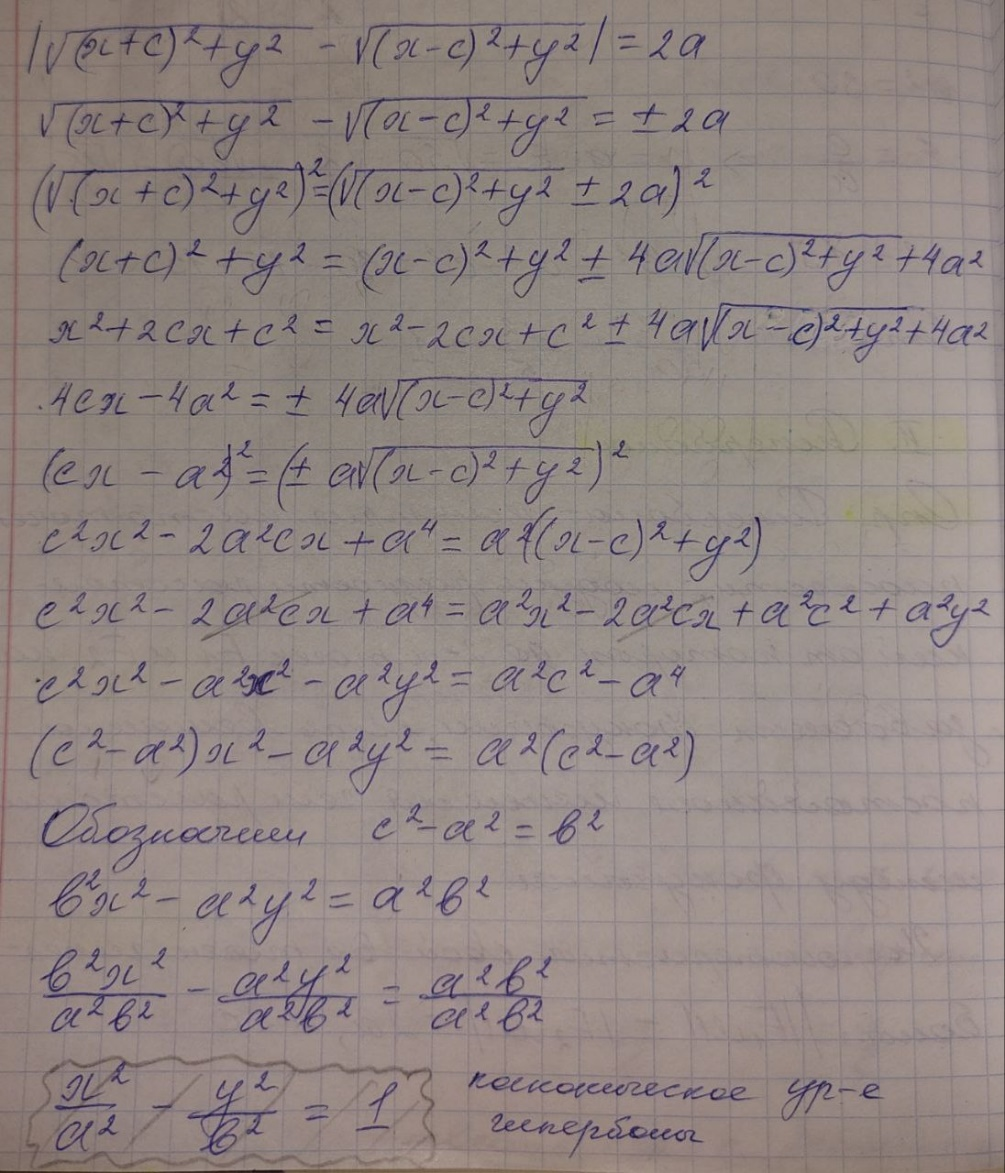 |√(x+c)²+y² - √(x-c)²+y²| = 2a
√(x+c)²+y² - √(x-c)²+y² = ± 2a
(√(x+c)²+y²)² = (√(x-c)²+y² ± 2a)²
(x+c)²+y² = (x-c)²+y² ± 4a√(x-c)²+y² + 4a²
x²+2cx+c² = x²-2cx+c² ± 4a√(x-c)²+y² + 4a²
4cx - 4a² = ± 4a√(x-c)²+y²
(cx - a²)² = (± a√(x-c)²+y²)²
c²x² - 2a²cx + a⁴ = a²((x-c)²+y²)
c²x² - 2a²cx + a⁴ = a²x² - 2a²cx + a²c² + a²y²
c²x² - a²x² - a²y² = a²c² - a⁴
(c²-a²)x² - a²y² = a²(c²-a²)
Обозначим c²-a² = в²
в²x² - a²y² = a²в²
в²x²/a²в² - a²y²/a²в² = a²в²/a²в²
x²/a² - y²/в² = 1 каноническое ур-е
гиперболы